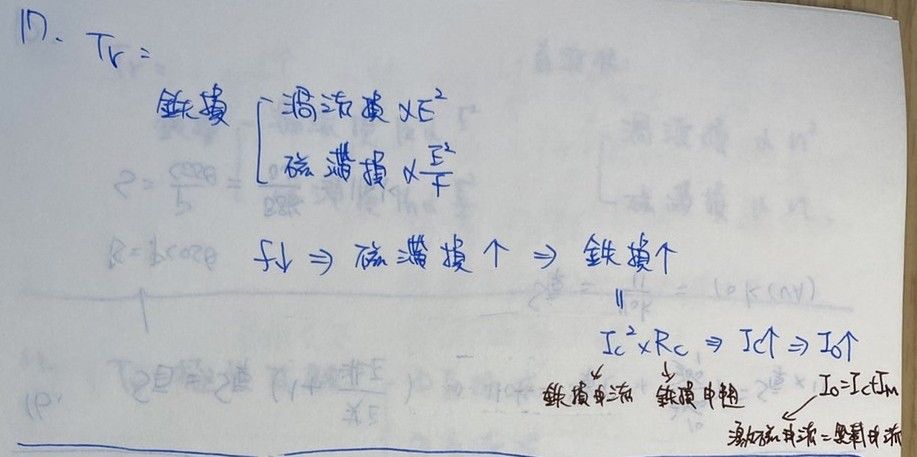 17. Tr：
鉄損 渦流損 ∝E²
磁滯損 ∝ E²/f
f↓ ⇒ 磁滯損↑ ⇒ 鉄損↑
=
Ic²×Rc ⇒ Ic↑ ⇒ I₀↑
鉄損电流 鉄損电阻 I₀=Ic+Im
激磁电流=無載电流